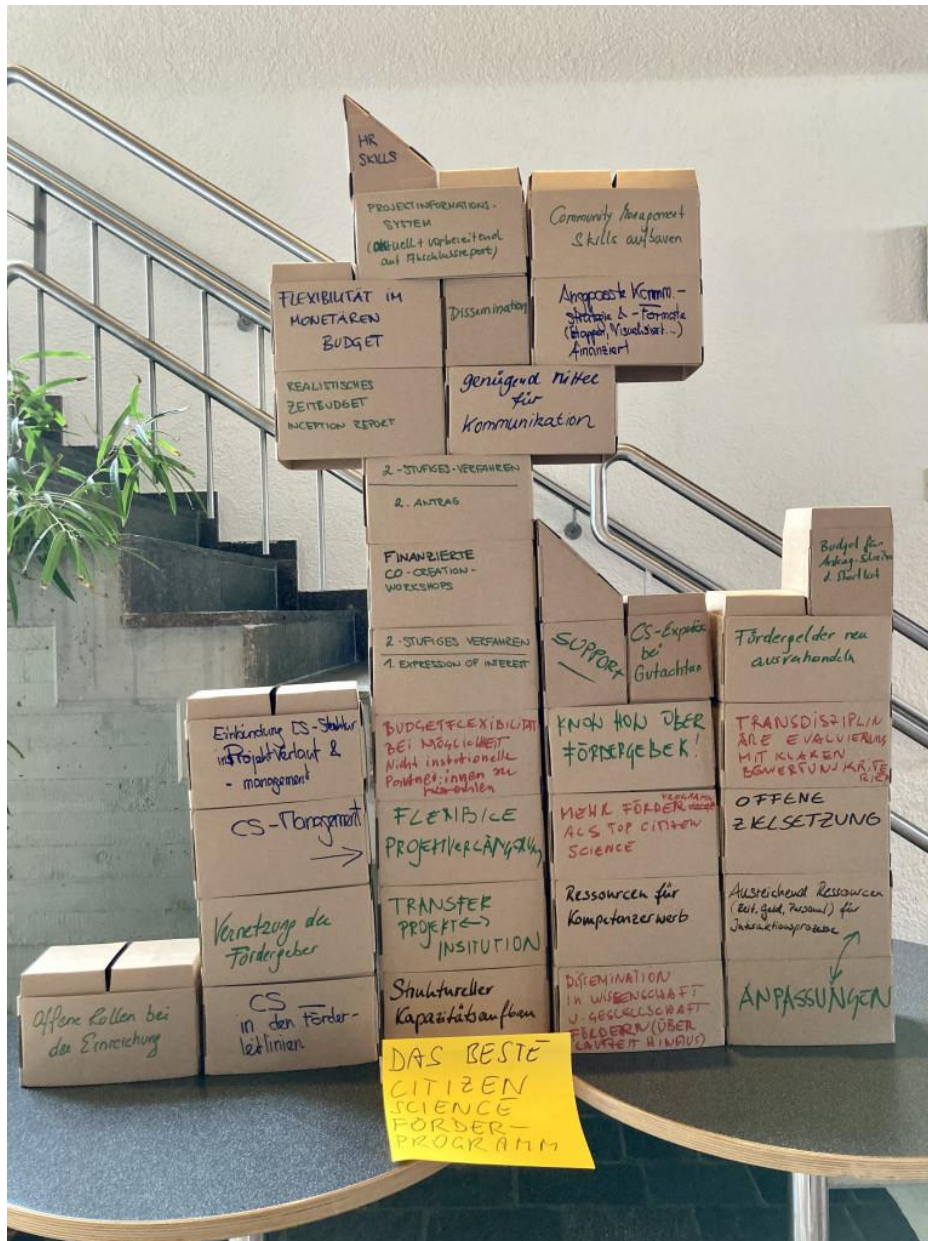 HR
SKILLS
PROJEKTINFORMATIONS-
SYSTEM
(aktuell + vorbereitend
auf Abschlussreport)
Community Management
Skills aufbauen
FLEXIBILITÄT IM
MONETÄREN
BUDGET
Dissemination
Angepasste Komm.-
strategie & -Formate
(Etappen, Visualisiert...)
finanziert
REALISTISCHES
ZEITBUDGET
INCEPTION REPORT
genügend Mittel
für
Kommunikation
2-STUFIGES-VERFAHREN
2. ANTRAG
FINANZIERTE
CO-CREATION-
WORKSHOPS
Budget für
Antrag-Schreiben
2-STUFIGES VERFAHREN
1. EXPRESSION OF INTEREST
SUPPORT
CS-Expertise
bei
Gutachten
Fördergelder neu
ausverhandeln
Einbindung CS-Struktur
in Projektverlauf &
- management
BUDGETFLEXIBILITÄT
BEI MÖGLICHKEIT
Nicht institutionelle
Partner:innen zu
KNOW HOW ÜBER
FÖRDERGEBER!
TRANSDISZIPLIN
ÄRE EVALUIERUNG
MIT KLAREN
BEWERTUNSKRITE
RIEN
CS-Management
→
FLEXIBLE
PROJEKTVERLÄNGERUNG
MEHR FÖRDERPROGRAMME
ALS TOP CITIZEN
SCIENCE
OFFENE
ZIELSETZUNG
Vernetzung der
Fördergeber
TRANSFER
PROJEKT ↔
INSITUTION
Ressourcen für
Kompetenzerwerb
Ausreichend Ressourcen
(Zeit, Geld, Personal) für
Interaktionsprozesse
Offene Rollen bei
der Einreichung
CS
in den Förder-
leitlinien
Struktureller
Kapazitätsaufbau
DISSEMINATION
in WISSENSCHAFT
U. GESELLSCHAFT
FÖRDERN (ÜBER
LAUFZEIT HINAUS)
ANPASSUNGEN
DAS BESTE
CITIZEN
SCIENCE
FÖRDER-
PROGRAMM